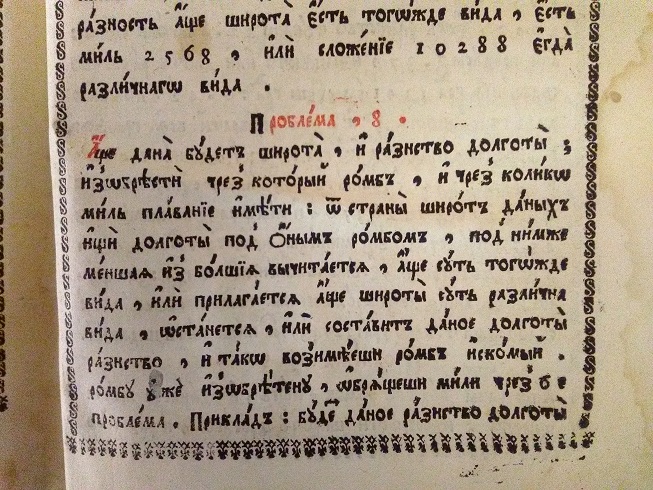 ра́зность а҆́ще широта̀ є҆́сть тогѡ́жде ви́да , є҆́сть
ми́ль 2568 , и҆лѝ сложе́нїе 10288 є҆гда̀
разли́чнагѡ ви́да .
Пробле́ма , 8 .
А҆́ще дана̀ бу́детъ широта̀ , и҆ ра́знство долготы̀ ;
и҆з̾ѡбрѣстѝ чрез̾ кото́рый ро́мбъ , и҆ чрез̾ коли́кѡ
ми́ль пла́ванїе и҆мѣ́ти : ѿ страны̀ широ́тъ да́ныхъ
и҆щѝ долготы̀ под̾ О҆́нымъ ро́мбомъ , под̾ ни́мже
ме́ншая и҆з̾ бо́лшїя вычита́ется , а҆́ще сꙋ́ть тогѡ́жде
ви́да , и҆лѝ прилага́ется а҆́ще широты̀ сꙋ́ть разли́чна
ви́да , ѡ҆ста́нется , и҆лѝ соста́витъ да́ное долготы̀
ра́знство , и҆ та́кѡ воз̾имѣ́еши ро́мбъ и҆ско́мый .
ро́мбу ᲂу҆жѐ и҆з̾ѡбрѣ́тену , ѡ҆бря́щеши ми́ли чрез̾ 6 е
пробле́ма . Прикла́дъ : бу́де да́ное ра́знство долготы̀